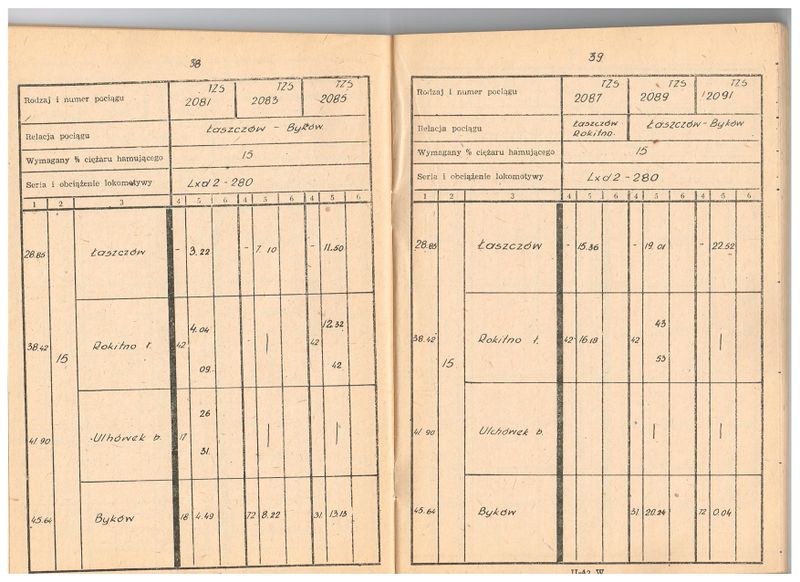 38
Rodzaj i numer pociągu TZS 2081 TZS 2083 TZS 2085
Relacja pociągu Łaszczów - Byków
Wymagany % ciężaru hamującego 15
Seria i obciążenie lokomotywy Lxd2 - 280
1 2 3 4 5 6 4 5 6 4 5 6
28.85 Łaszczów - 3.22 - 7.10 - 11.50
4.04 12.32
38.42 15 Rokitno t. 42 | 42
09 42
26
41.90 Ulhówek b. 17 | |
31
45.64 Byków 18 4.49 72 8.22 31 13.13
39
Rodzaj i numer pociągu TZS 2087 TZS 2089 TZS 2091
Relacja pociągu Łaszczów Rokitno. Łaszczów - Byków
Wymagany % ciężaru hamującego 15
Seria i obciążenie lokomotywy Lxd2 - 280
1 2 3 4 5 6 4 5 6 4 5 6
28.85 Łaszczów - 15.36 - 19.01 - 22.52
43
38.42 15 Rokitno t. 42 16.18 42 |
53
41.90 Ulchówek b. | |
45.64 Byków 31 20.24 72 0.04